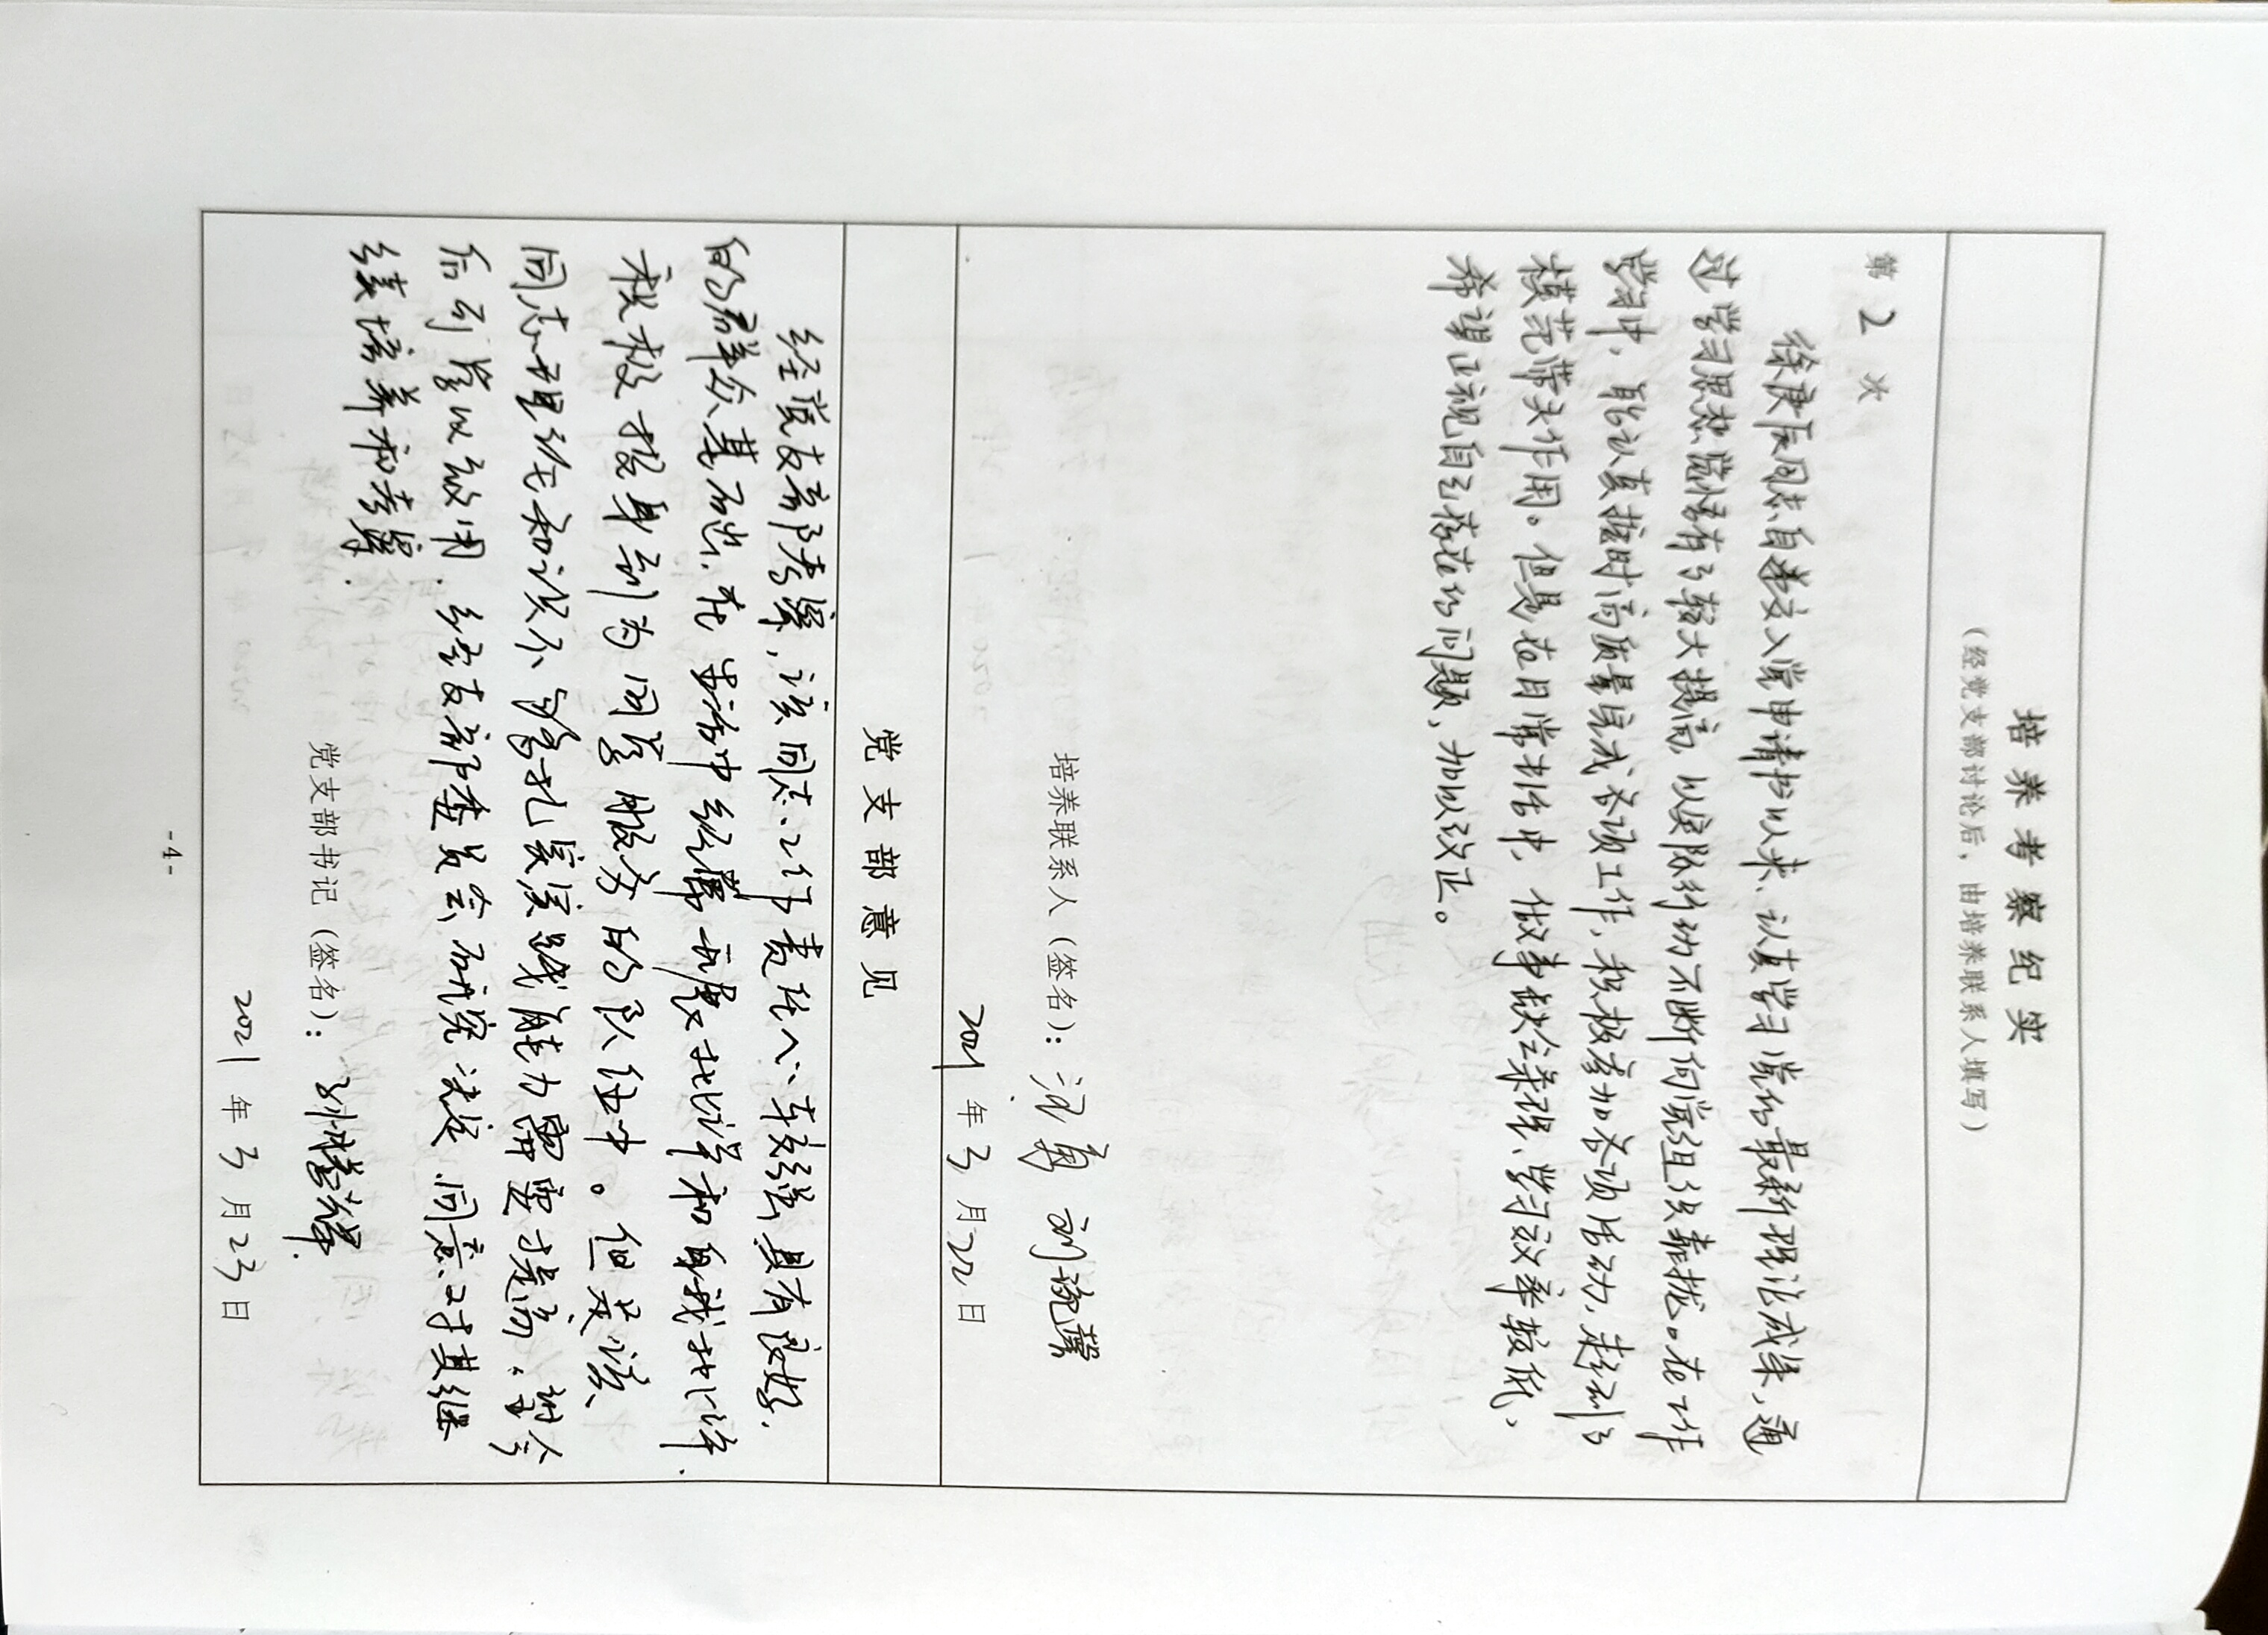 培养考察纪实
（经党支部讨论后，由培养联系人填写）
第 2 次
徐庚辰同志自递交入党申请书以来、认真学习党的最新理论成果，通
过学习思想觉悟有了较大提高，以实际行动不断向党组织靠拢。在工作
学习中，能认真按时高质量完成各项工作，积极参加各项活动，起到了
模范带头作用。但是在日常生活中，做事缺乏条理、学习效率较低，
希望正视自己存在的问题，加以改正。
培养联系人（签名）：汪勇 刘琬馨
2021 年 3 月 22 日
党支部意见
经党支部考察，该同志工作责任心较强具有良好
的群众基础.在生活中经常开展批评和自我批评.
积极投身到为同学服务的队伍中。但是该
同志理论知识不够扎实实践能力需要提高.望今
后可学以致用.经支部委员会研究决定.同意对其继
续培养和考察.
党支部书记（签名）：孙腾辉
2021 年 3 月 23 日
-4-